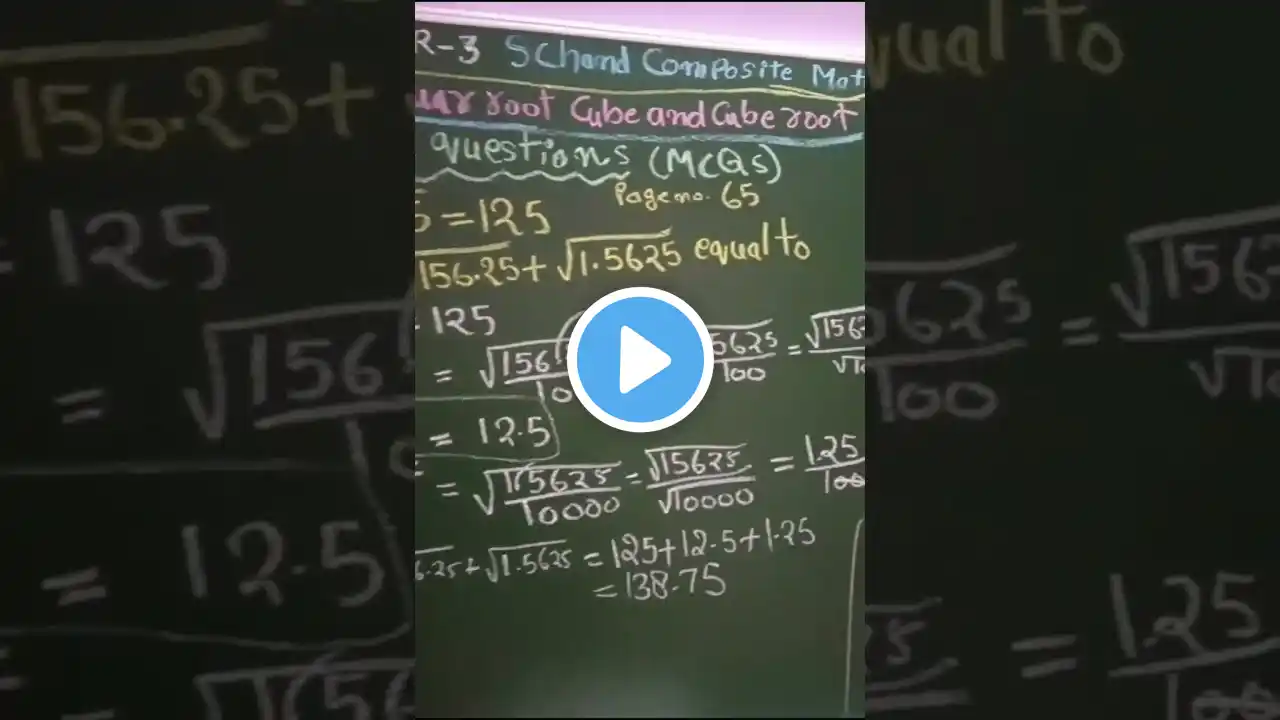 R-3 SChand Composite Mat
uar root Cube and Cube root
questions (MCQs)
Page no. 65
5 = 125
156.25 + √1.5625 equal to
= 125
= √156
5625/100 = √156
= 12.5
= √15625/10000 = √15625/√10000 = 1.25/100
6.25 + √1.5625 = 125+12.5+1.25
= 138.75